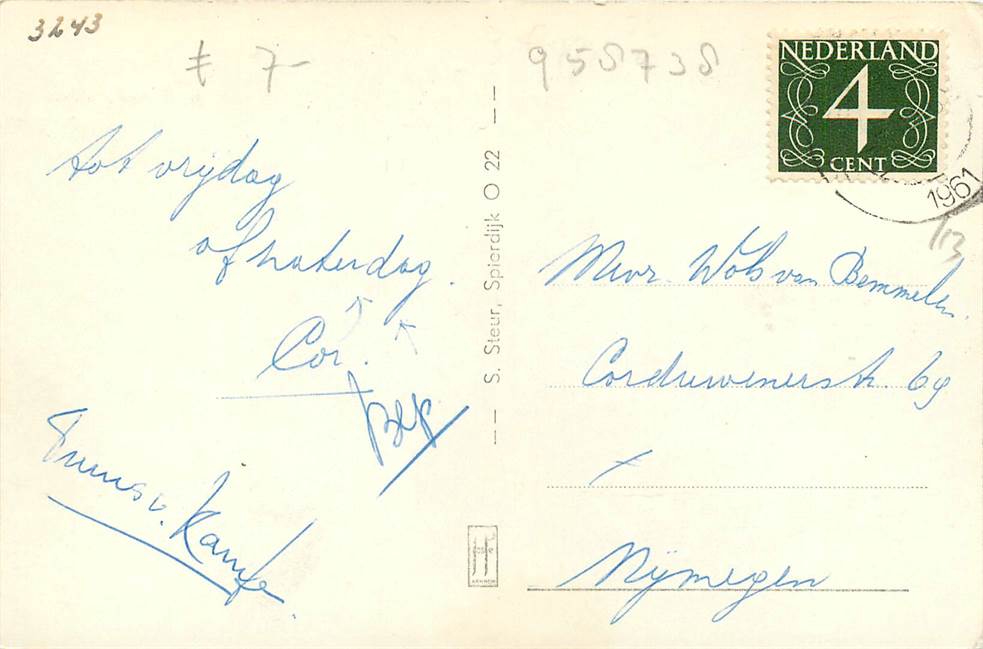 3243
7-
958738
NEDERLAND
4
CENT
1961
/13
tot vrijdag
of zaterdag.
Cor.
Bep
Truus v. Kampe.
-- S. Steur, Spierdijk O 22 --
Mevr. Wols van Bemmelen.
Corduwenerstr. 69
Nijmegen